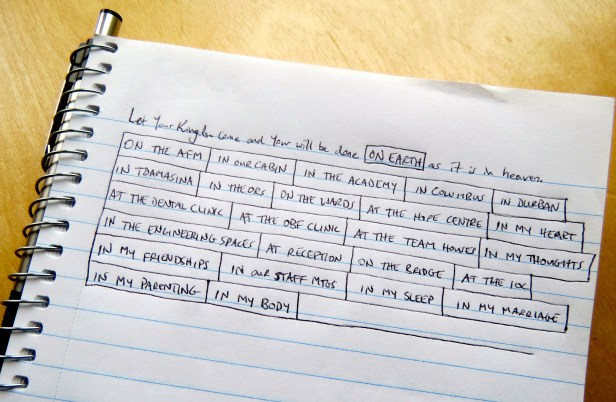 Let Your Kingdom come and Your will be done ON EARTH as it is in heaven
ON THE AFM IN OUR CABIN IN THE ACADEMY IN COLUMBUS IN DURBAN
IN TOAMASINA IN THE ORS ON THE WARDS AT THE HOPE CENTRE IN MY HEART
AT THE DENTAL CLINIC AT THE OBF CLINIC AT THE TEAM HOUSES IN MY THOUGHTS
IN THE ENGINEERING SPACES AT RECEPTION ON THE BRIDGE AT THE IOC
IN MY FRIENDSHIPS IN OUR STAFF MTGS IN MY SLEEP IN MY MARRIAGE
IN MY PARENTING IN MY BODY